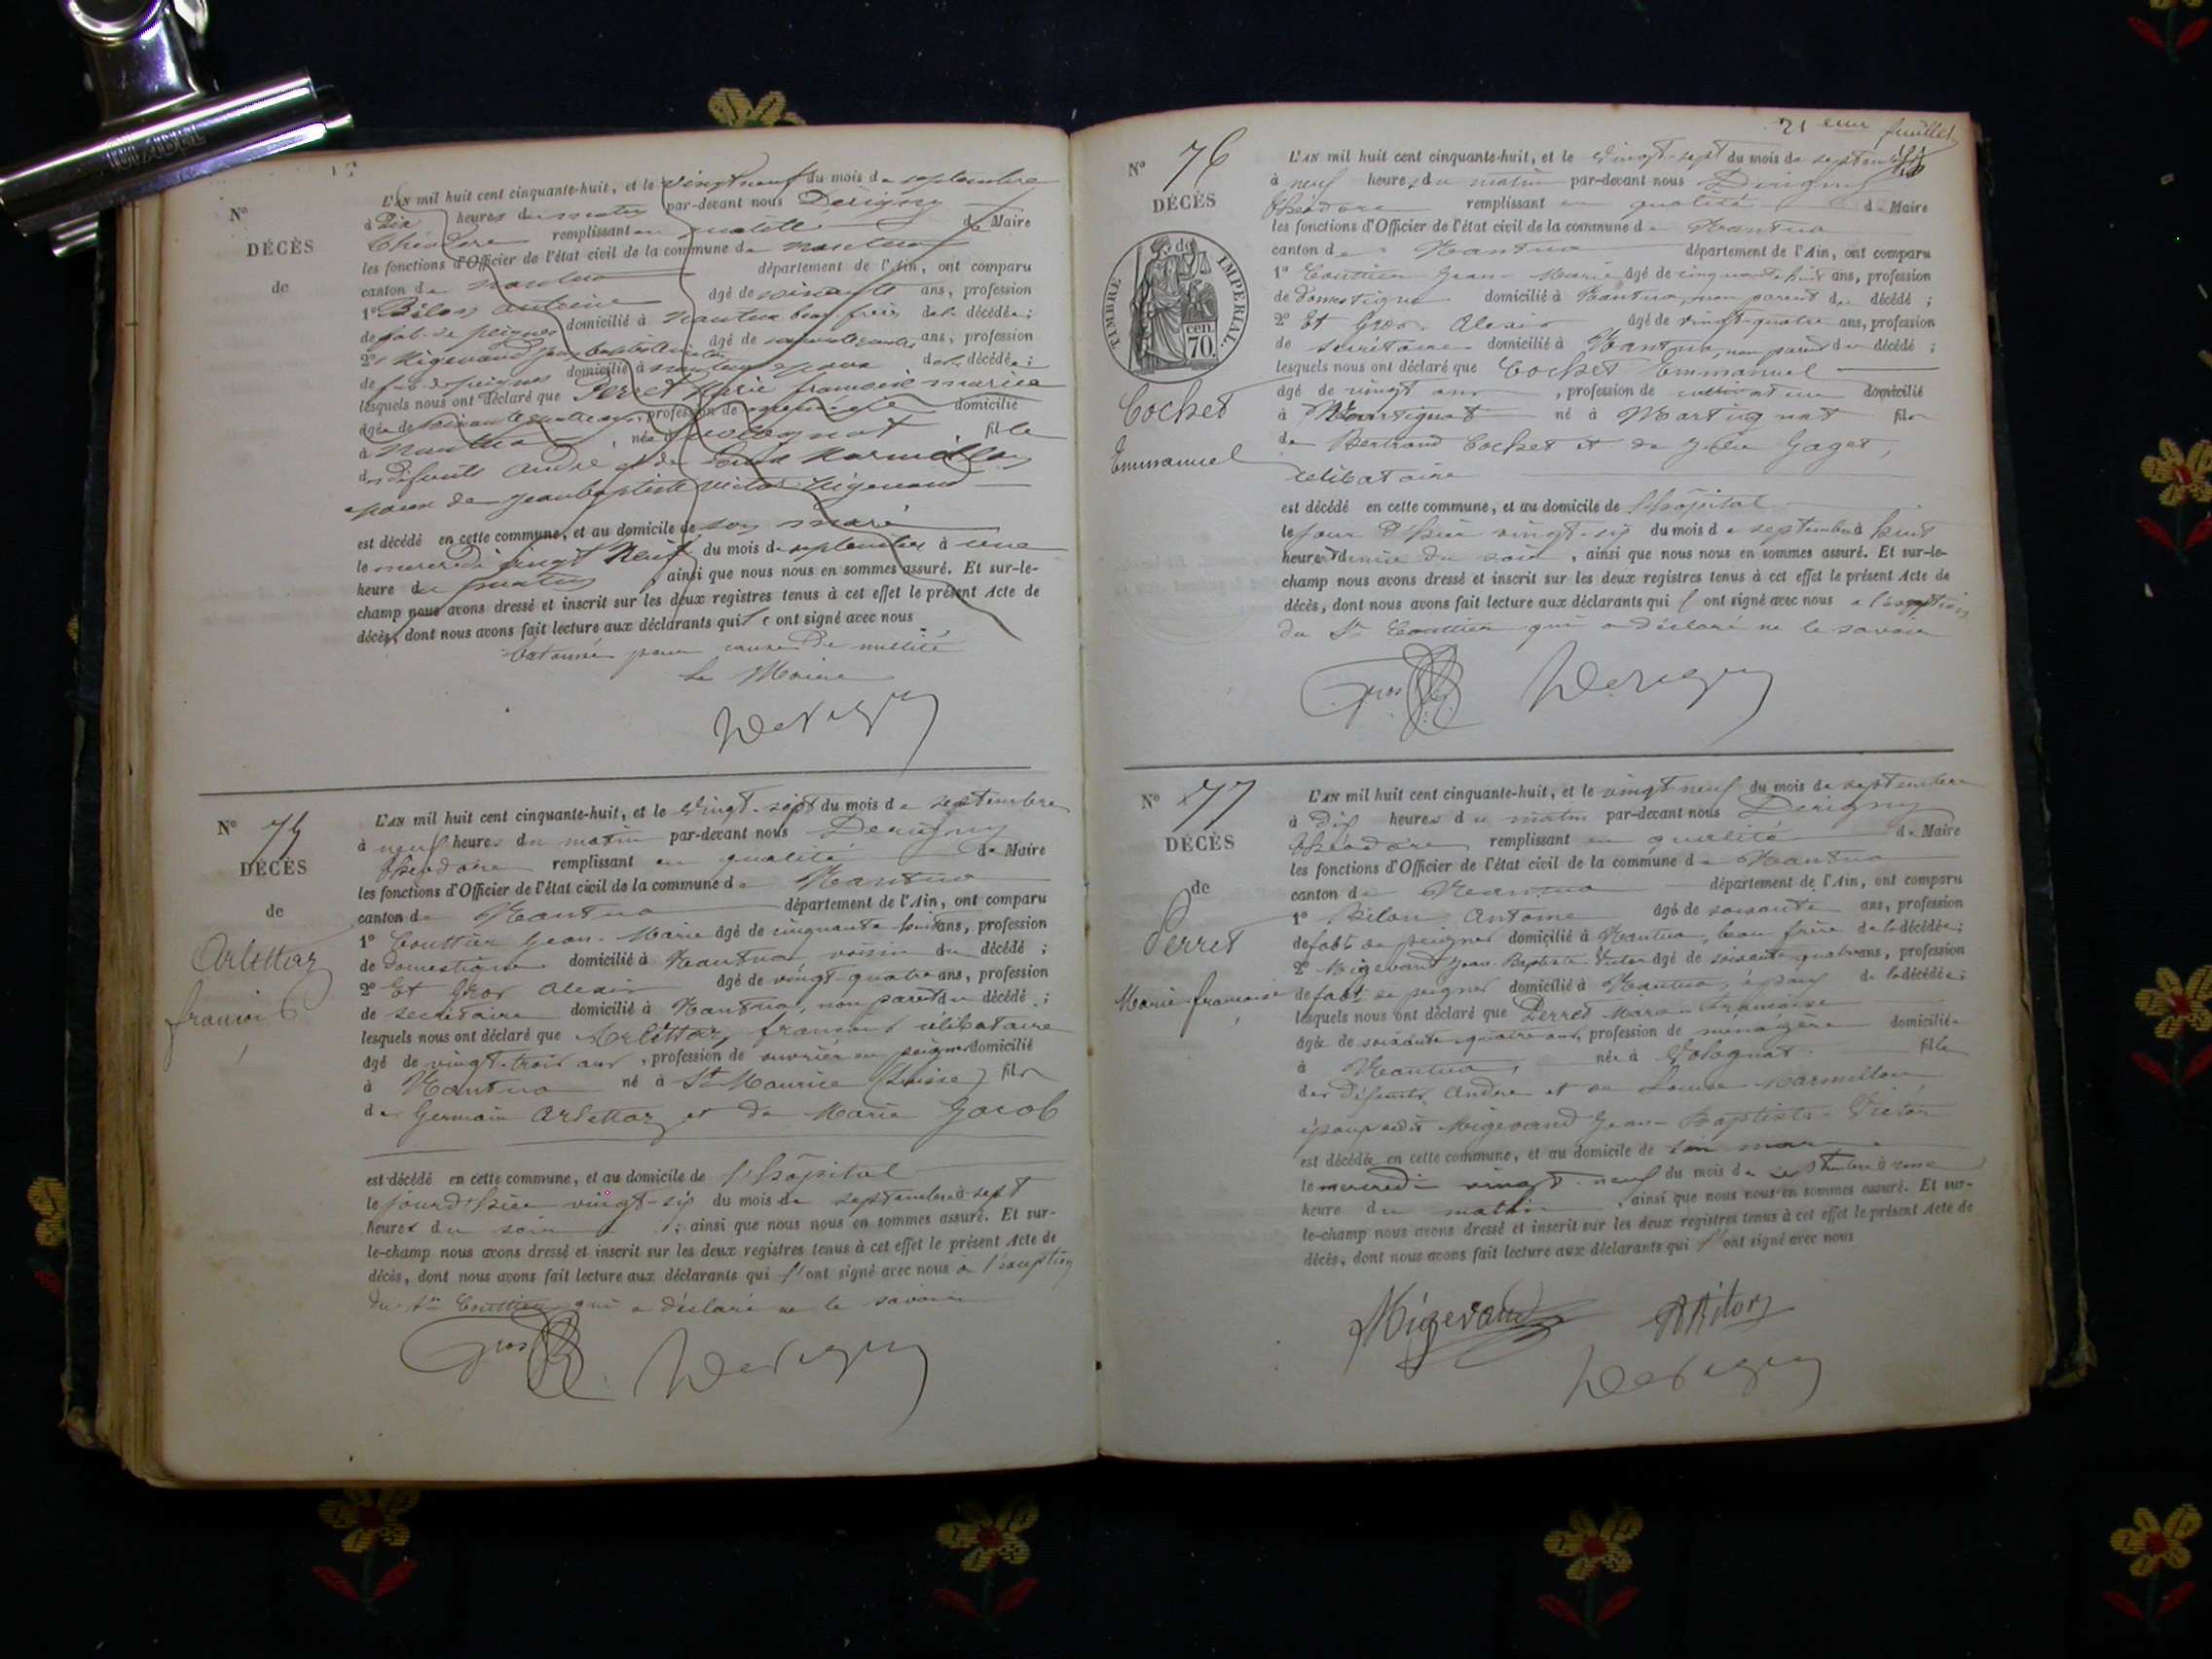 N°
DÉCÈS
de
L'AN mil huit cent cinquante-huit, et le vingt neuf du mois de septembre
à Dix heures du matin par-devant nous Derigny
Théodore remplissant en qualité de Maire
les fonctions d'Officier de l'état civil de la commune de Nantua
canton de Nantua département de l'Ain, ont comparu
1° Bilon Antoine âgé de soixante ans, profession
de fab. de peignes domicilié à Nantua beau frère de la décédée ;
2° Migevand Jean baptiste Victor âgé de soixante quatre ans, profession
de fab. de peignes domicilié à Nantua époux de la décédée ;
lesquels nous ont déclaré que Perret Marie françoise
âgée de soixante quatre ans, profession de ménagère domicilié
à Nantua, née à Volognat fille
des défunts André et de Louise Marmillon
époux de Jean baptiste Victor Migevand
est décédé en cette commune, et au domicile de son mari
le mercredi vingt Neuf du mois de septembre à une
heure du matin, ainsi que nous nous en sommes assuré. Et sur-le-
champ nous avons dressé et inscrit sur les deux registres tenus à cet effet le présent Acte de
décès, dont nous avons fait lecture aux déclarants qui ont signé avec nous
Batonné pour cause de nullité
Le Maire
Derigny
N° 75
DÉCÈS
de
Arlettaz
françois
L'AN mil huit cent cinquante-huit, et le vingt-sept du mois de septembre
à neuf heures du matin par-devant nous Derigny
Théodore remplissant en qualité de Maire
les fonctions d'Officier de l'état civil de la commune de Nantua
canton de Nantua département de l'Ain, ont comparu
1° Couttier Jean-Marie âgé de cinquante huit ans, profession
de domestique domicilié à Nantua voisin du décédé ;
2° Et Gros Alexis âgé de vingt quatre ans, profession
de secrétaire domicilié à Nantua, non parent du décédé ;
lesquels nous ont déclaré que Arlettaz françois célibataire
âgé de vingt-trois ans, profession de ouvrier en peignes domicilié
à Nantua né à St Maurice (Suisse) fils
de Germain Arlettaz et de Marie Jacob
est décédé en cette commune, et au domicile de l'hôpital
le jour d'hier vingt-six du mois de septembre à sept
heures du soir ; ainsi que nous nous en sommes assuré. Et sur-
le-champ nous avons dressé et inscrit sur les deux registres tenus à cet effet le présent Acte de
décès, dont nous avons fait lecture aux déclarants qui l'ont signé avec nous à l'exception
du Sr Couttier qui a déclaré ne le savoir
Gros Derigny
21 eme feuillet
N° 76
DÉCÈS
TIMBRE IMPERIAL.
70 cen.
Cochet
Emmanuel
L'AN mil huit cent cinquante-huit, et le vingt-sept du mois de septembre
à neuf heures du matin par-devant nous Derigny
Théodore remplissant en qualité de Maire
les fonctions d'Officier de l'état civil de la commune de Nantua
canton de Nantua département de l'Ain, ont comparu
1° Couttier Jean-Marie âgé de cinquante huit ans, profession
de domestique domicilié à Nantua, non parent du décédé ;
2° Et Gros Alexis âgé de vingt-quatre ans, profession
de secrétaire domicilié à Nantua, non parent du décédé ;
lesquels nous ont déclaré que Cochet Emmanuel
âgé de vingt ans, profession de cultivateur domicilié
à Martignat né à Martignat fils
de Bertrand Cochet et de Julie Gaget,
célibataire
est décédé en cette commune, et au domicile de l'hôpital
le jour d'hier vingt-six du mois de septembre à huit
heures demie du soir, ainsi que nous nous en sommes assuré. Et sur-le-
champ nous avons dressé et inscrit sur les deux registres tenus à cet effet le présent Acte de
décès, dont nous avons fait lecture aux déclarants qui l'ont signé avec nous à l'exception
du Sr Couttier qui a déclaré ne le savoir
Gros Derigny
N° 77
DÉCÈS
de
Perret
Marie françoise
L'AN mil huit cent cinquante-huit, et le vingt neuf du mois de septembre
à dix heures du matin par-devant nous Derigny
Théodore remplissant en qualité de Maire
les fonctions d'Officier de l'état civil de la commune de Nantua
canton de Nantua département de l'Ain, ont comparu
1° Bilon Antoine âgé de soixante ans, profession
de fabt de peignes domicilié à Nantua, beau frère de la décédée ;
2° Migevand Jean-Baptiste Victor âgé de soixante quatre ans, profession
de fabt de peignes domicilié à Nantua, époux de la décédée ;
lesquels nous ont déclaré que Perret Marie Françoise
âgée de soixante quatre ans, profession de ménagère domiciliée
à Nantua, née à Volognat fille
des défunts André et de Louise Marmillon
épouse dudit Migevand Jean-Baptiste Victor
est décédée en cette commune, et au domicile de son mari
le mercredi vingt-neuf du mois de septembre à une
heure du matin, ainsi que nous nous en sommes assuré. Et sur-
le-champ nous avons dressé et inscrit sur les deux registres tenus à cet effet le présent Acte de
décès, dont nous avons fait lecture aux déclarants qui l'ont signé avec nous
Migevand ABilon
Derigny